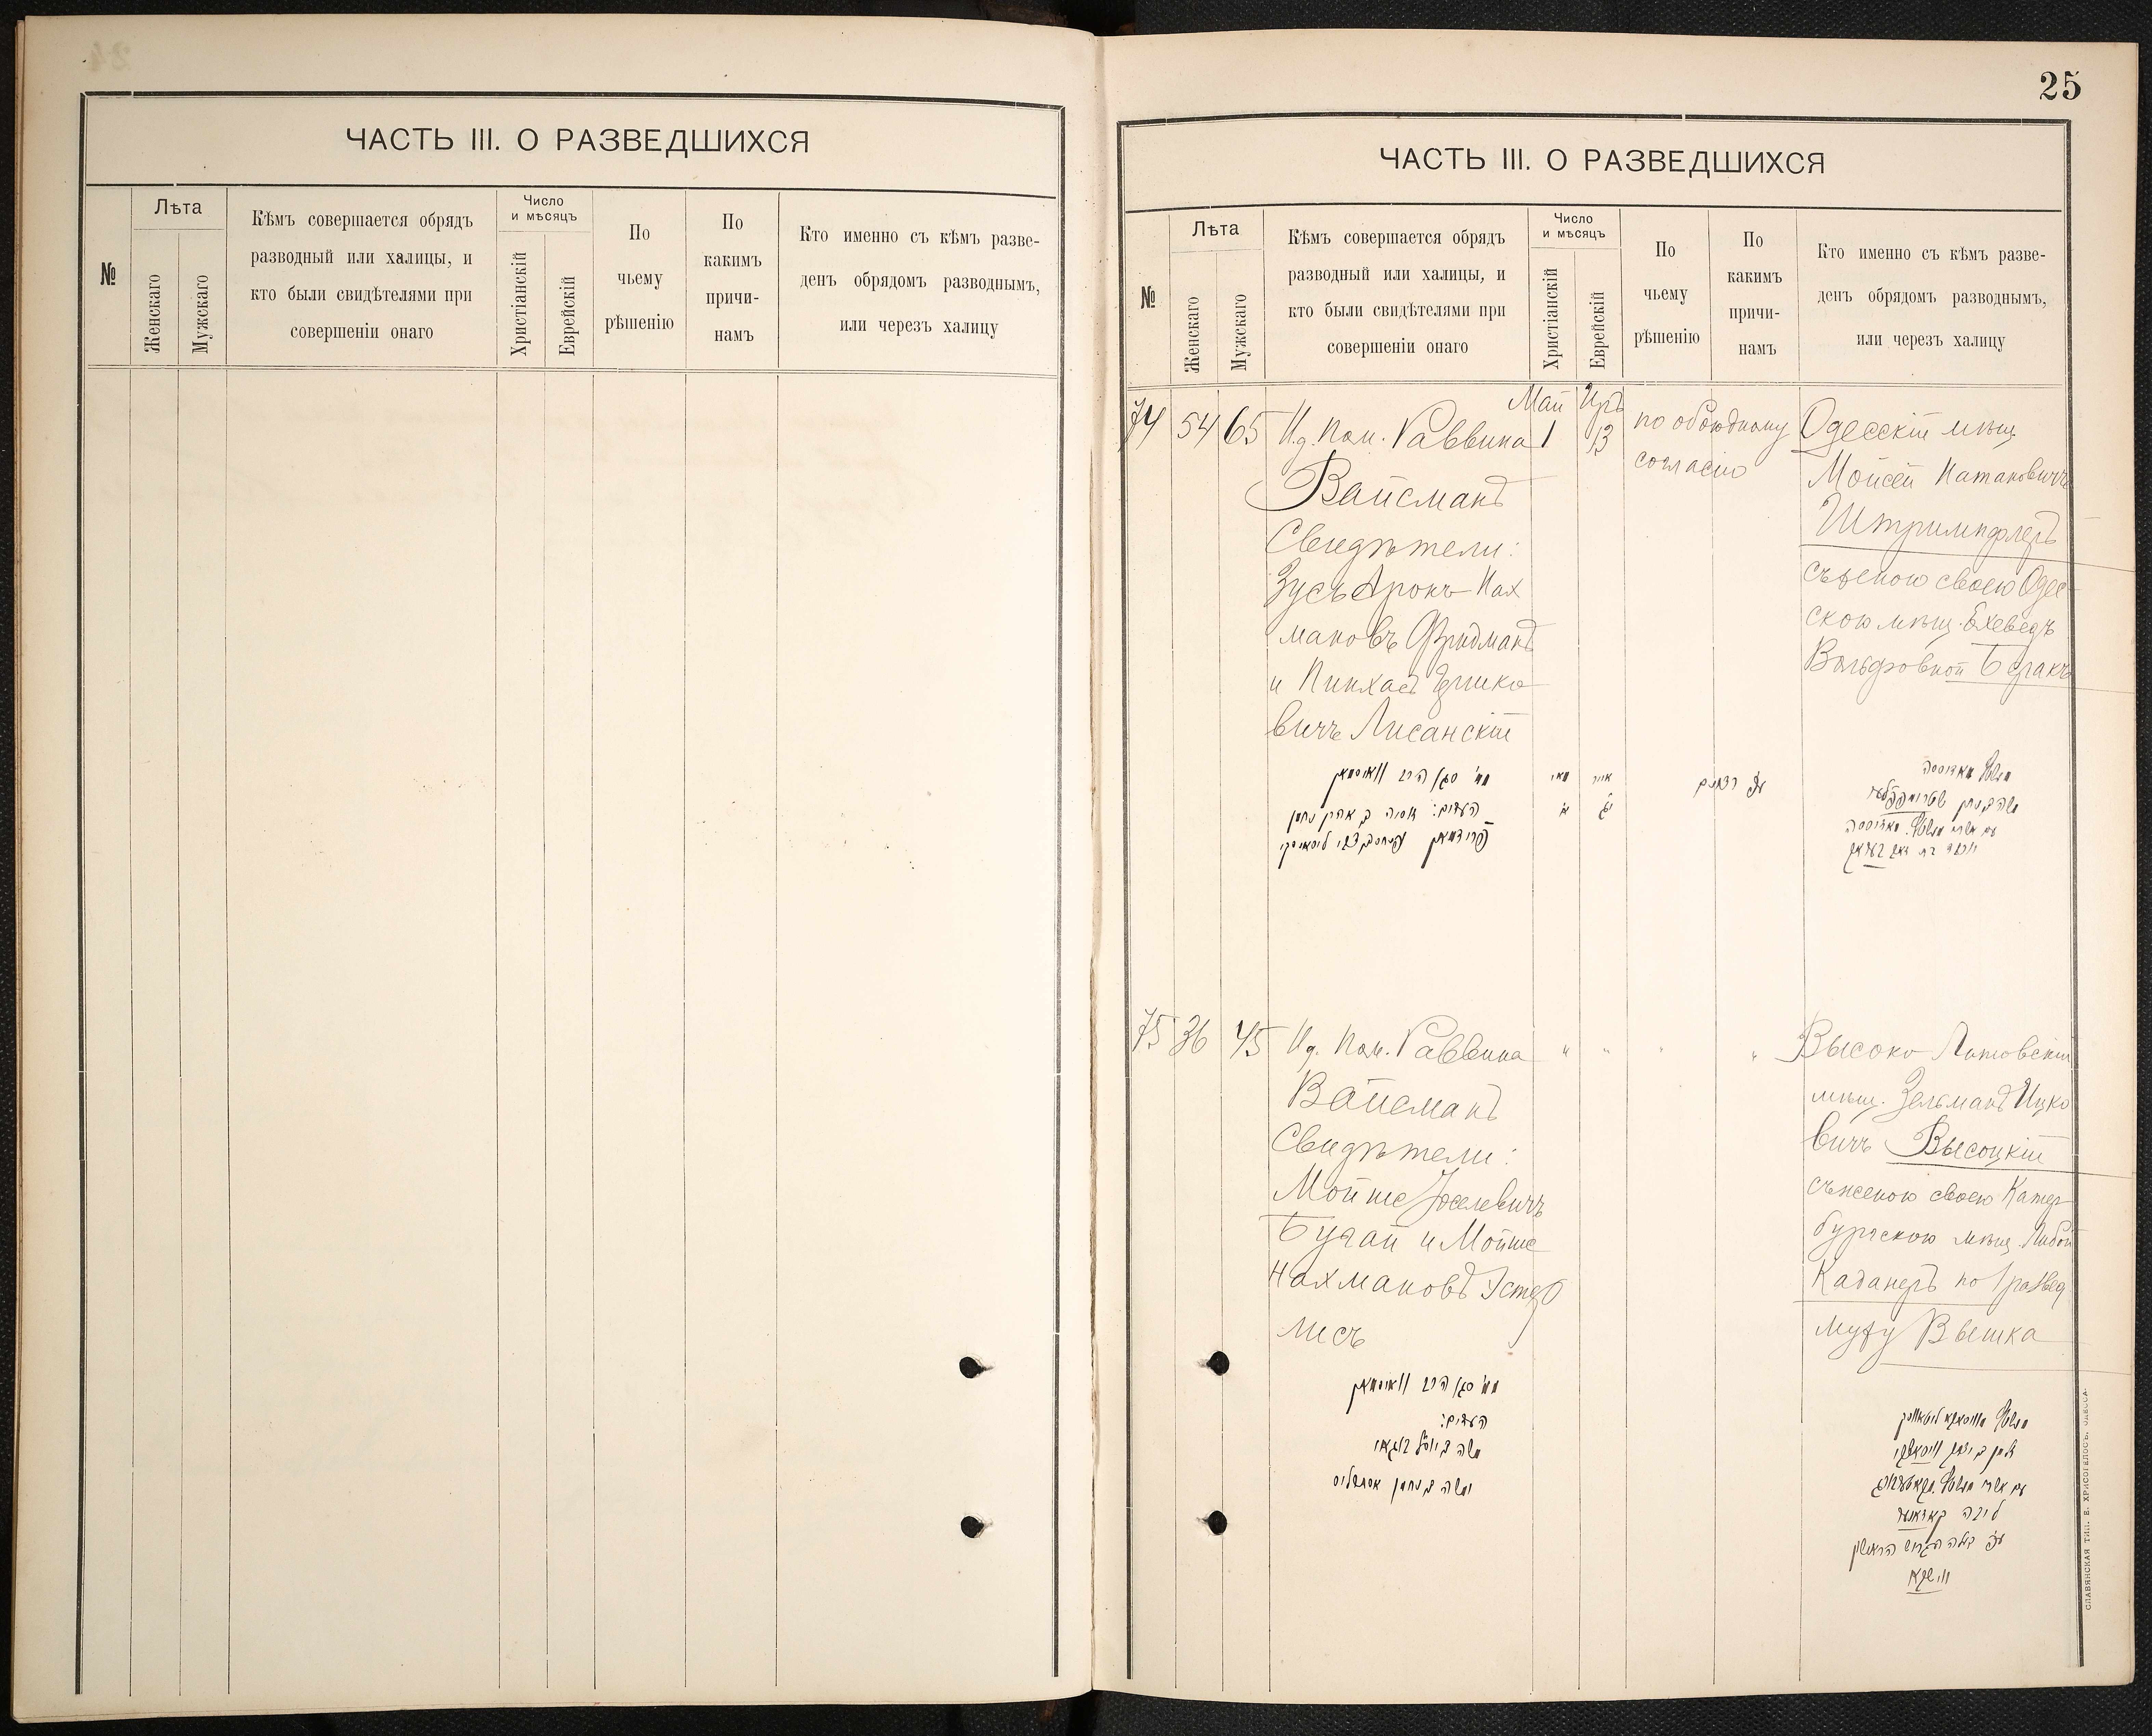 ЧАСТЬ III. О РАЗВЕДШИХСЯ
№
Лѣта
Женскаго
Мужскаго
Кѣмъ совершается обрядъ
разводный или халицы, и
кто были свидѣтелями при
совершеніи онаго
Число
и мѣсяцъ
Христіанскій
Еврейскій
По
чьему
рѣшенію
По
какимъ
причи-
намъ
Кто именно съ кѣмъ разве-
денъ обрядомъ разводнымъ,
или черезъ халицу
25
ЧАСТЬ III. О РАЗВЕДШИХСЯ
№
Лѣта
Женскаго
Мужскаго
Кѣмъ совершается обрядъ
разводный или халицы, и
кто были свидѣтелями при
совершеніи онаго
Число
и мѣсяцъ
Христіанскій
Еврейскій
По
чьему
рѣшенію
По
какимъ
причи-
намъ
Кто именно съ кѣмъ разве-
денъ обрядомъ разводнымъ,
или черезъ халицу
74
54
65
И.д. Пом. Раввина
Вайсманъ
Свидѣтели:
Зусь Аронъ Нах
мановъ Фридманъ
и Пинхасъ
вичъ Лисанскій
Май
1
Иръ
13
по обоюдному
согласію
Одесскій мѣщ.
Мойсей Натановичъ
Штримпфлеръ
съ женою своею Одес
скою мѣщ. Ехеведъ
Вольфовной
סגן הרב וואיסמאן
העדים:
פרידמאן ליסאנסקי
מאי
א
אייר
יג
משה בן נתן
75
36
45
И.д. Пом. Раввина
Вайсманъ
Свидѣтели:
Мойше Іоселевичъ
Бугай и Мойше
Нахмановъ Эстер
лисъ
" " " "
Высоко Литовскій
мѣщ. Зельманъ Ицко
вичъ Высоцкій
съ женою своею Катер
бургскою мѣщ. Либой
Каданеръ по 1 развед
мужу Вышка
סגן הרב וואיסמאן
העדים:
משה בן יוסל בוגאי
ומשה בן נחמן
זלמן בן יצחק וויסאצקי
ליבה קאדאנער
ווישקא
СЛАВЯНСКАЯ ТИП. Е. ХРИСОГЕЛОСЪ. ОДЕССА.